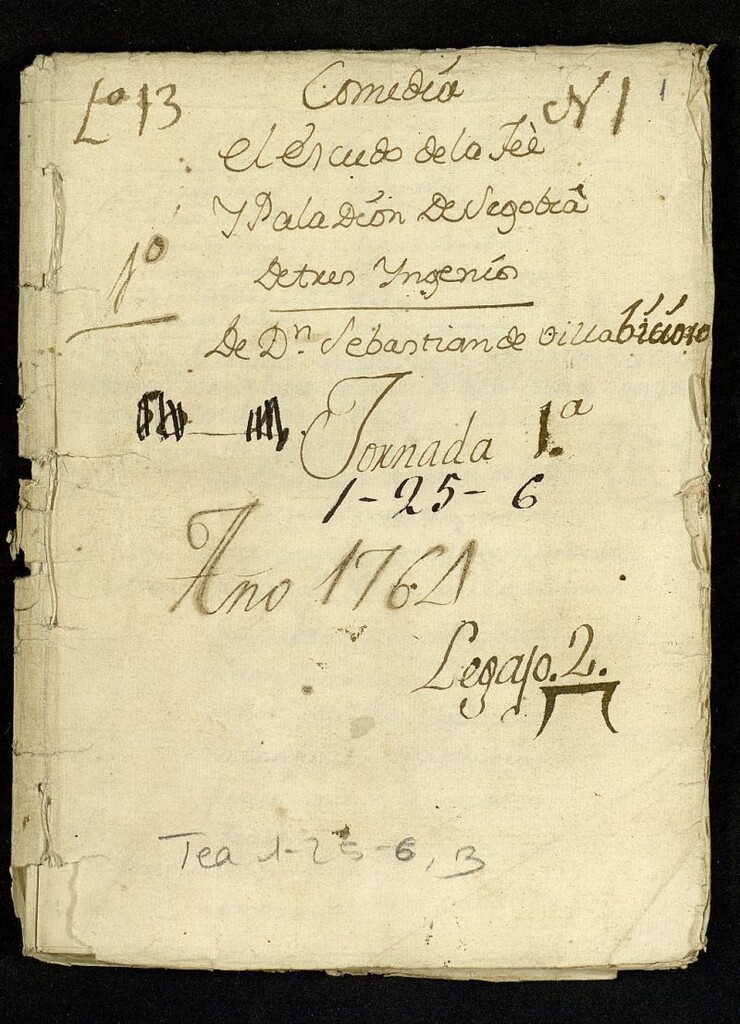 Lº 13
Comedia
N 1
1
el Escudo de la Feè
Y Paladion De Segobia
1º
De tres Yngenios
De Dn. Sebastian de Villabicioso
Jornada 1.a
1-25-6
Año 1764
Legajo. 2.
Tea 1-25-6, B